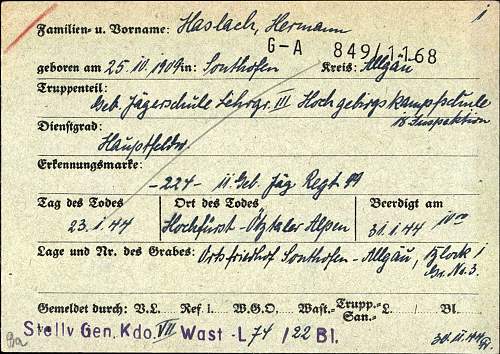 Familien- u. Vorname: Haslach, Hermann
G-A 849/1168
geboren am 25.IV.1909 in: Sonthofen Kreis: Allgäu
Truppenteil:
Geb. Jägerschule Lehrgr. III Hochgebirgskampfschule
18 Inspektion
Dienstgrad:
Hauptfeldw.
Erkennungsmarke:
-224- 11 Geb. Jäg Regt 99
Tag des Todes Ort des Todes Beerdigt am
23.1.44 Hochfürst-Ötztaler Alpen 31.1.44
Lage und Nr. des Grabes: Ortsfriedhof Sonthofen-Allgäu, Block 1
Gr. No. 3.
Gemeldet durch: V.L. Ref. i. W.G.O. Wast.-Trupp.-San.- L. / Bl.
Stellv Gen. Kdo. VII Wast -L 74 / 22 Bl.